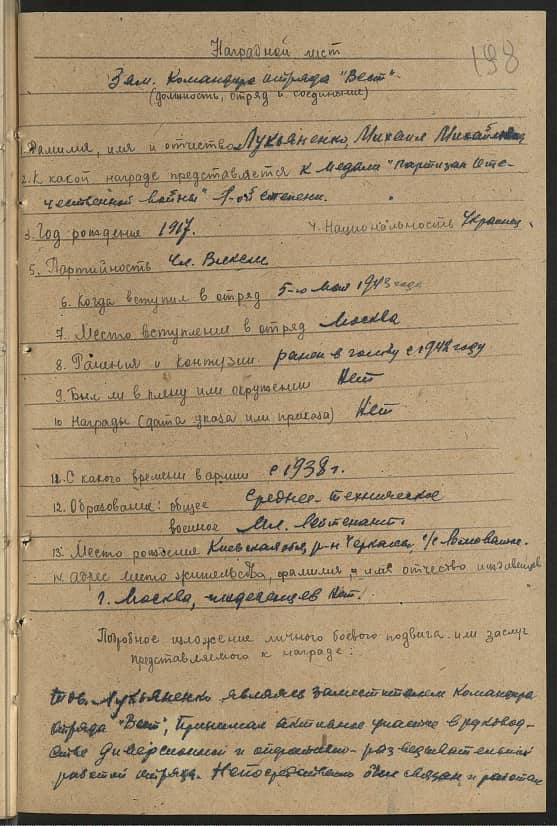 198
Наградной лист
Зам. Командира отряда "Вест".
(должность, отряд и соединение)
1. Фамилия, имя и отчество Лукьяненко, Михаил Михайлович
2. К какой награде представляется К медали "Партизан Оте-
чественной войны" 1-ой степени.
3. Год рождения 1917. 4. Национальность Украинец
5. Партийность Чл. ВЛКСМ
6. Когда вступил в отряд 5-го мая 1943 года
7. Место вступления в отряд Москва
8. Ранения и контузии ранен в голову в 1942 году
9. Был ли в плену или окружении Нет
10 Награды (дата указа или приказа) Нет
11. С какого времени в армии с 1938 г.
12. Образование: общее Среднее-техническое
военное Мл. Лейтенант.
13. Место рождения Киевская обл, р-н Черкассы, с/с
14. Адрес место жительства, фамилия, имя отчество иждивенцев
г. Москва, иждевенцев Нет.
Подробное изложение личного боевого подвига или заслуг
представляемого к награде:
Тов. Лукьяненко являясь заместителем Командира
отряда "Вест", Принимал активное участие в руковод-
стве диверсионной и оперативно-разведывательной
работой отряда. Непосредственно был связан и работал